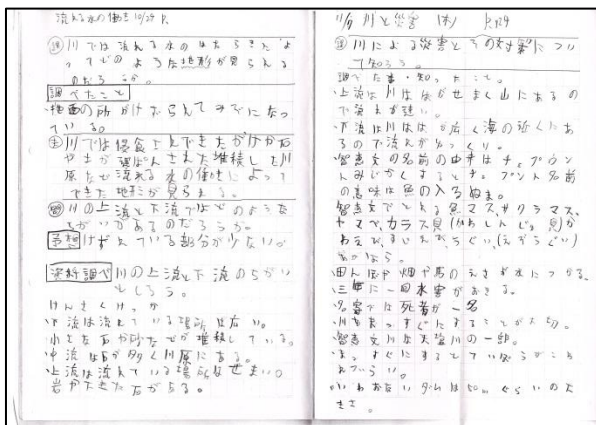 流れる水の働き 10/29 P.
課 川では流れる水のはたらきによ
ってどのような地形が見られる
のだろうか。
調べたこと
・地面の所がけずられてみぞになっ
ている。
ま 川では侵食されてできたがけや石
や土が運ぱんされた堆積した川
原など流れる水の働きによって
できた地形が見られる。
問 川の上流と下流ではどのような
ちがいがあるのだろうか。
予想 けずれている部分が少ない。
資料調べ 川の上流と下流のちがい
としろう。
けんさくけっか
・下流は流れている場所は広い。
小さな石や砂などが堆積している。
・中流は石が多く川原にある。
・上流は流れている場所はせまい。
岩や大きな石がある。
川と災害 P.124
課 川による災害とその対策につい
て知ろう。
調べた事・知ったこと。
・上流は川はばがせまく山にあるの
で流れが速い。
・下流は川はばが広く海の近くにあ
るので流れがゆっくり。
智恵文の名前の由来は
の意味は魚の入るぬま。
智恵文でとれる魚マス、サクラマス、
ヤマベ、カラス貝
・田んぼや畑や馬のえさが水につかる。
・三年に一回水害がおきる。
水害では死者が一名
・川をまっすぐにすることが大切。
・智恵文川は天塩川の一部。
・まっすぐにするとていぼうがこわ
れづらい。
・いわおないダムは50mぐらいの大
きさ。